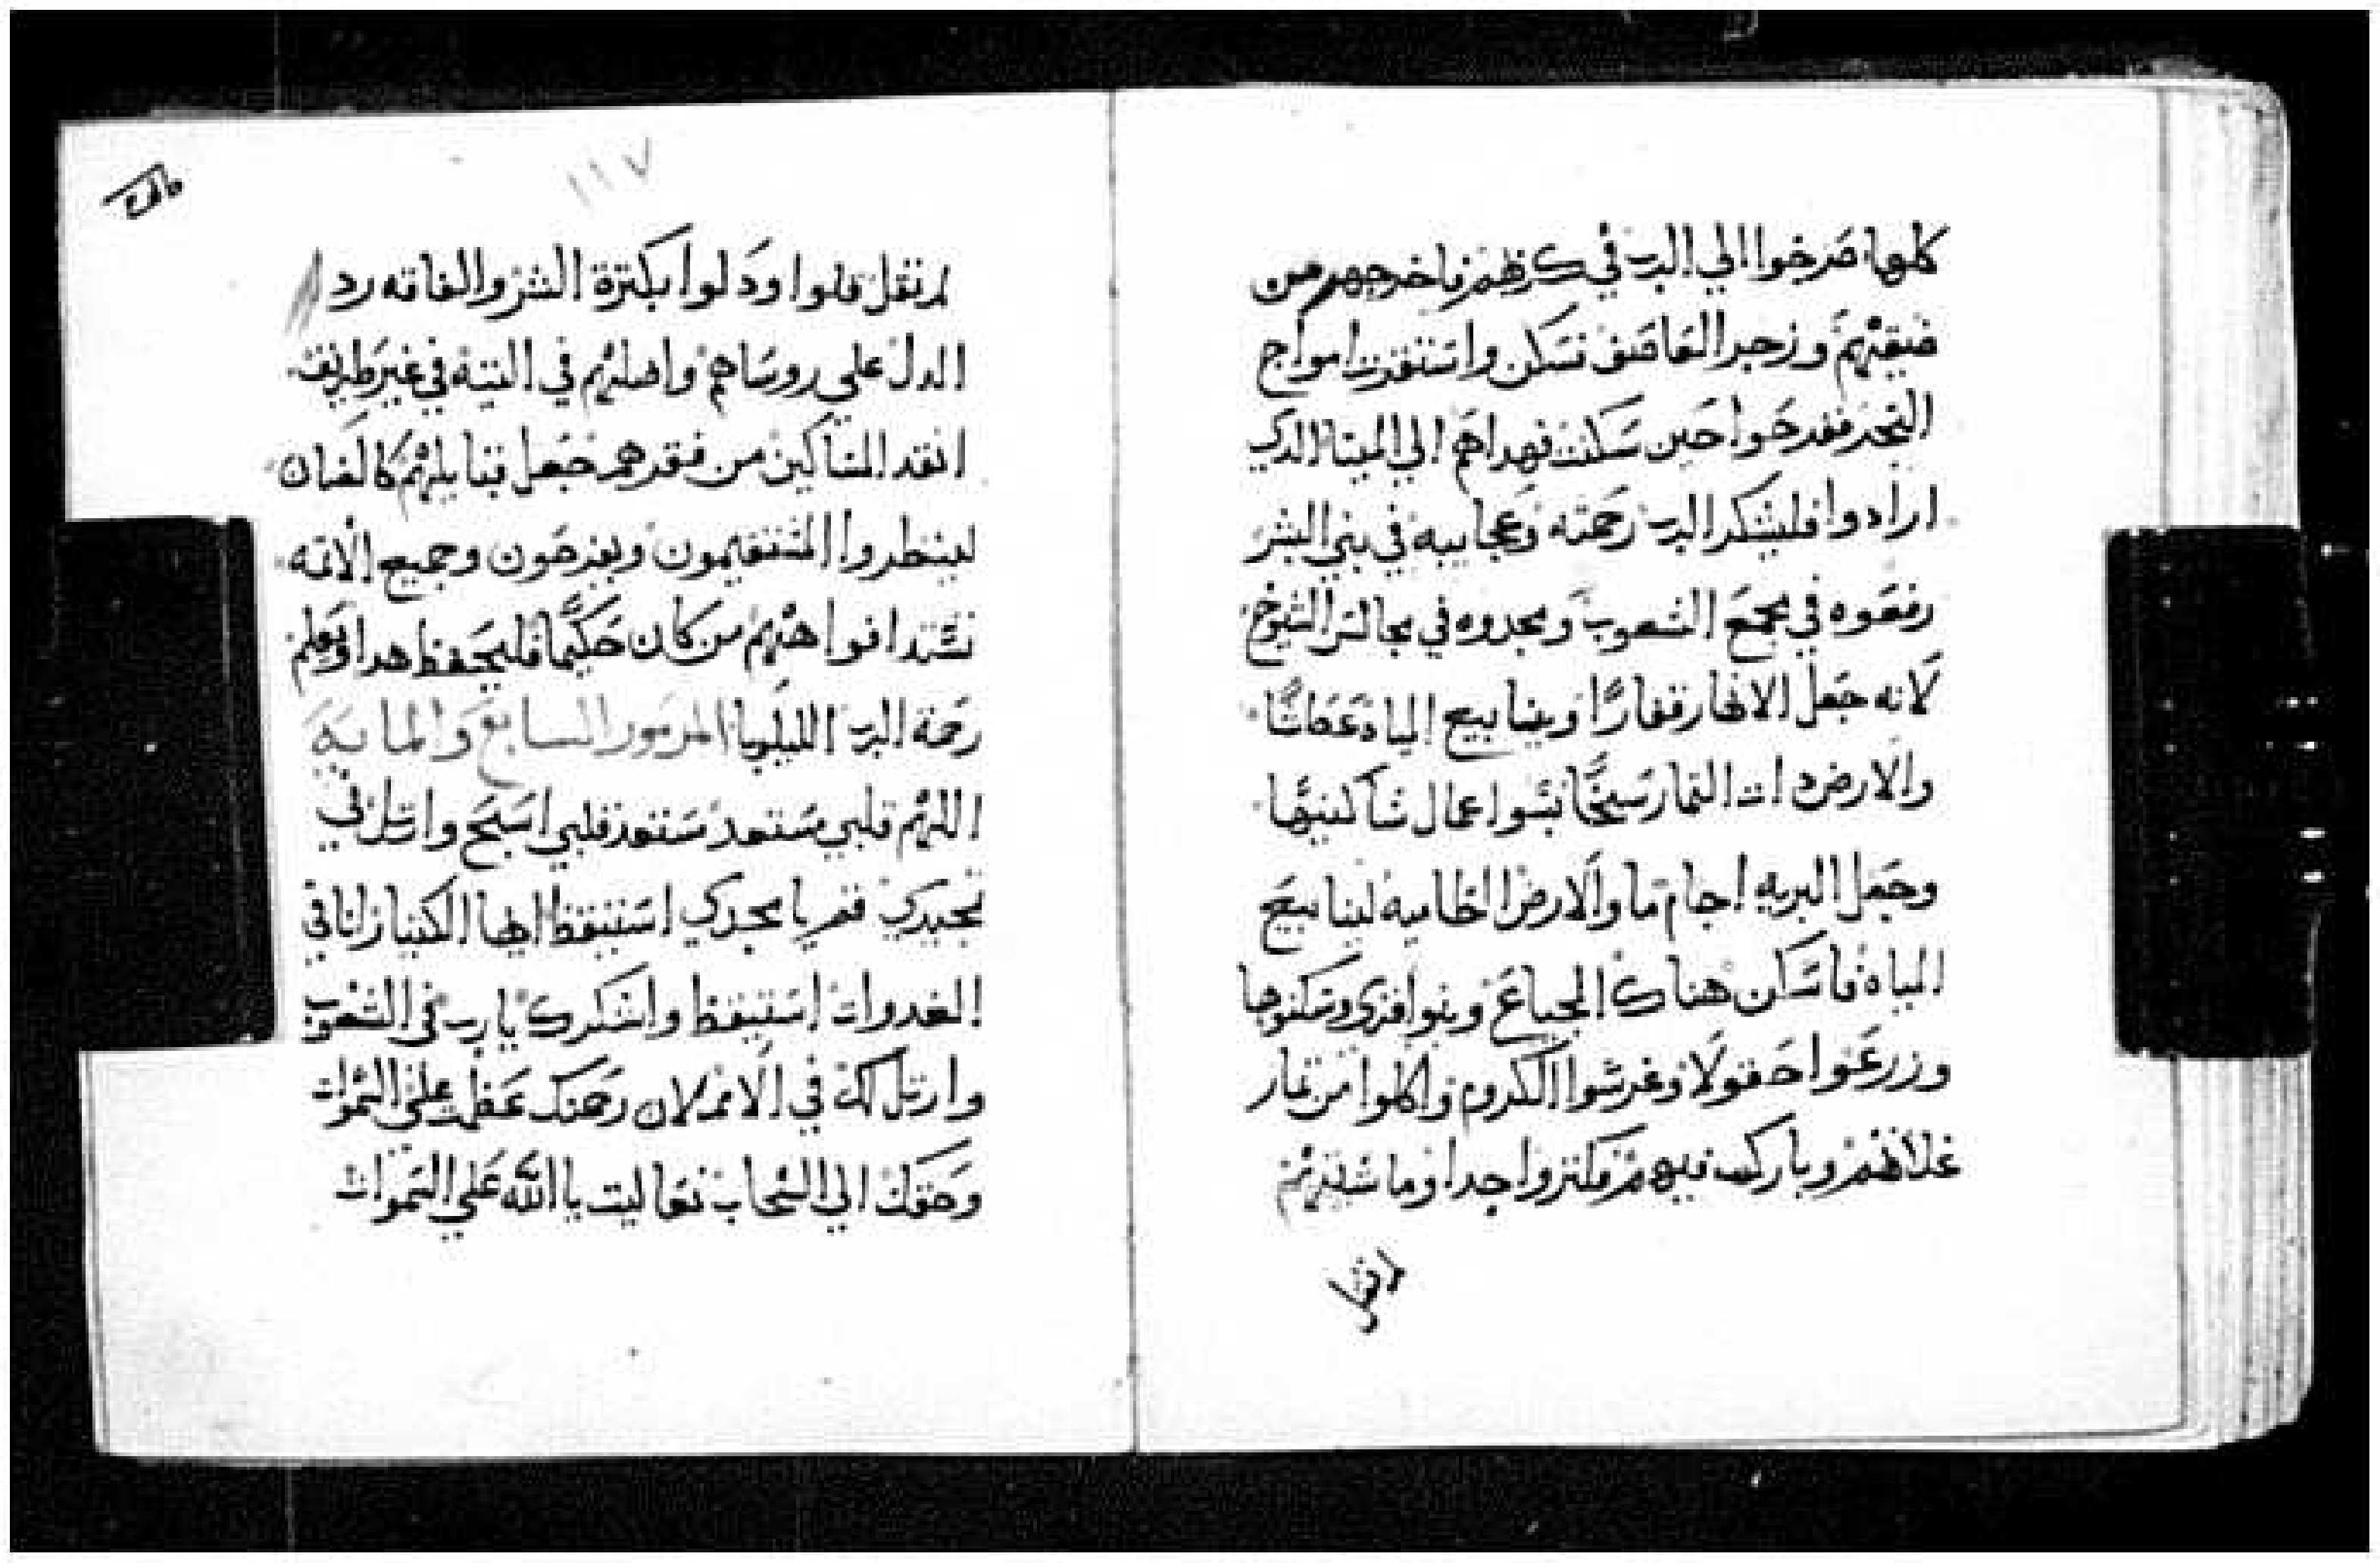 كلها صرخوا الي الرب في كربهم فاخرجهم من
ضيقتهم وزجر العاصف فسكن واستقرت امواج
البحر ففرحوا حين سكنت فهداهم الي المينا الدي
ارادوا فليشكر الرب رحمته وعجايبه في بني البشر
رفعوه في مجمع الشعوب ومجدوه في مجالس الشيوخ
لانه جعل الانهار قفارًا وينابيع المياه عطاشًا
والارض دات الثمار سبخًا بسوا عمال ساكنيها
وجعل البريه اجام ما والارض الظاميه لينابيع
المياه فاسكن هناك الجياع وبنوا قري وسكنوها
وزرعوا حقولًا وغرسوا الكروم واكلوا من ثمار
غلاتهم وبارك فيهم فكثروا جدا وماشيتهم
لم تقل
١١٧
لم تقل قلوا ودلوا بكثرة الشر والفاقه رد
الدل علي روساهم واضلهم في التيه في غير طريق
انقد المساكين من فقرهم جعل قبايلهم كالضان
لينظروا المستقيمون ويفرحون وجميع الاثمه
تستد افواههم من كان حكيمًا فليحفظ هدا ويعلم
رحمة الرب الليلويا المزمور السابع والمايه
اللهم قلبي مستعد مستعد قلبي اسبح وارتل في
تمجيدي فقم يا مجدي استيقظ ايها الكينار انا في
الغدوات استيقظ واشكرك يا رب في الشعوب
وارتل لك في الامم لان رحمتك عظمت علي السموات
وحقك الي السحاب تعاليت يا الله علي السموات